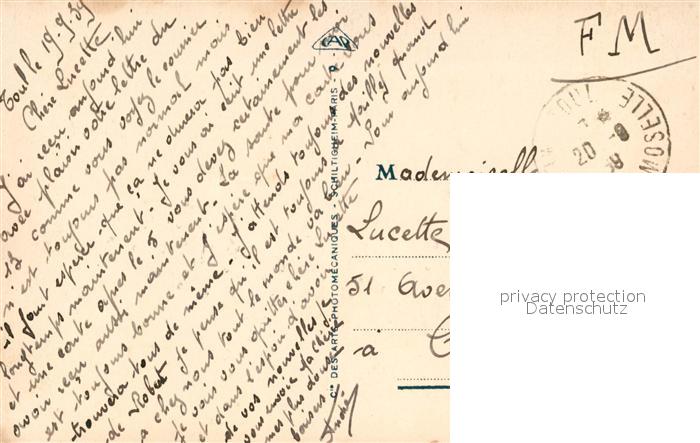 Toul le 19.9.39
Chère Lucette
J'ai reçu aujourd'hui
avec plaisir votre lettre du
12 comme vous voyez le courrier
n'est toujours pas normal mais
il faut espérer que ça ne durera pas bien
longtemps maintenant. Je vous ai écrit une lettre
et une carte après le 5 vous devez certainement les
avoir reçu aussi maintenant. La santé pour moi
est toujours bonne et j'espère que ma carte vous
trouvera tous de même. J'attends toujours des nouvelles
de Robert je pense qu'il est toujours
a chez nous tout le monde va bien. Pour aujourd'hui
Je vais vous quitter chère Lucette
et dans l'espoir d'avoir
de vos nouvelles
vous envoie ma chérie
mes plus doux
baisers
André
FM
Cie DES ARTS PHOTOMÉCANIQUES - SCHILTIGHEIM-PARIS
CAP
MOSELLE
20 -9
Mademoiselle
Lucette
51 Ave
à
privacy protection
Datenschutz